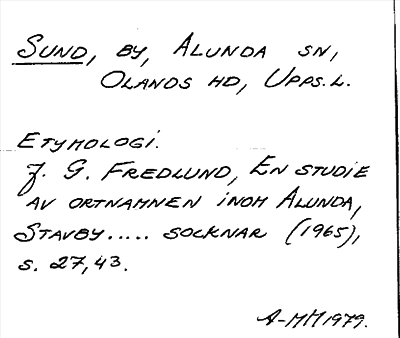 SUND, BY, ALUNDA SN,
OLANDS HD, UPPS.L.
ETYMOLOGI.
J. G. FREDLUND, EN STUDIE
AV ORTNAMNEN INOM ALUNDA,
STAVBY..... SOCKNAR (1965),
S. 27,43.
A-MM1979.